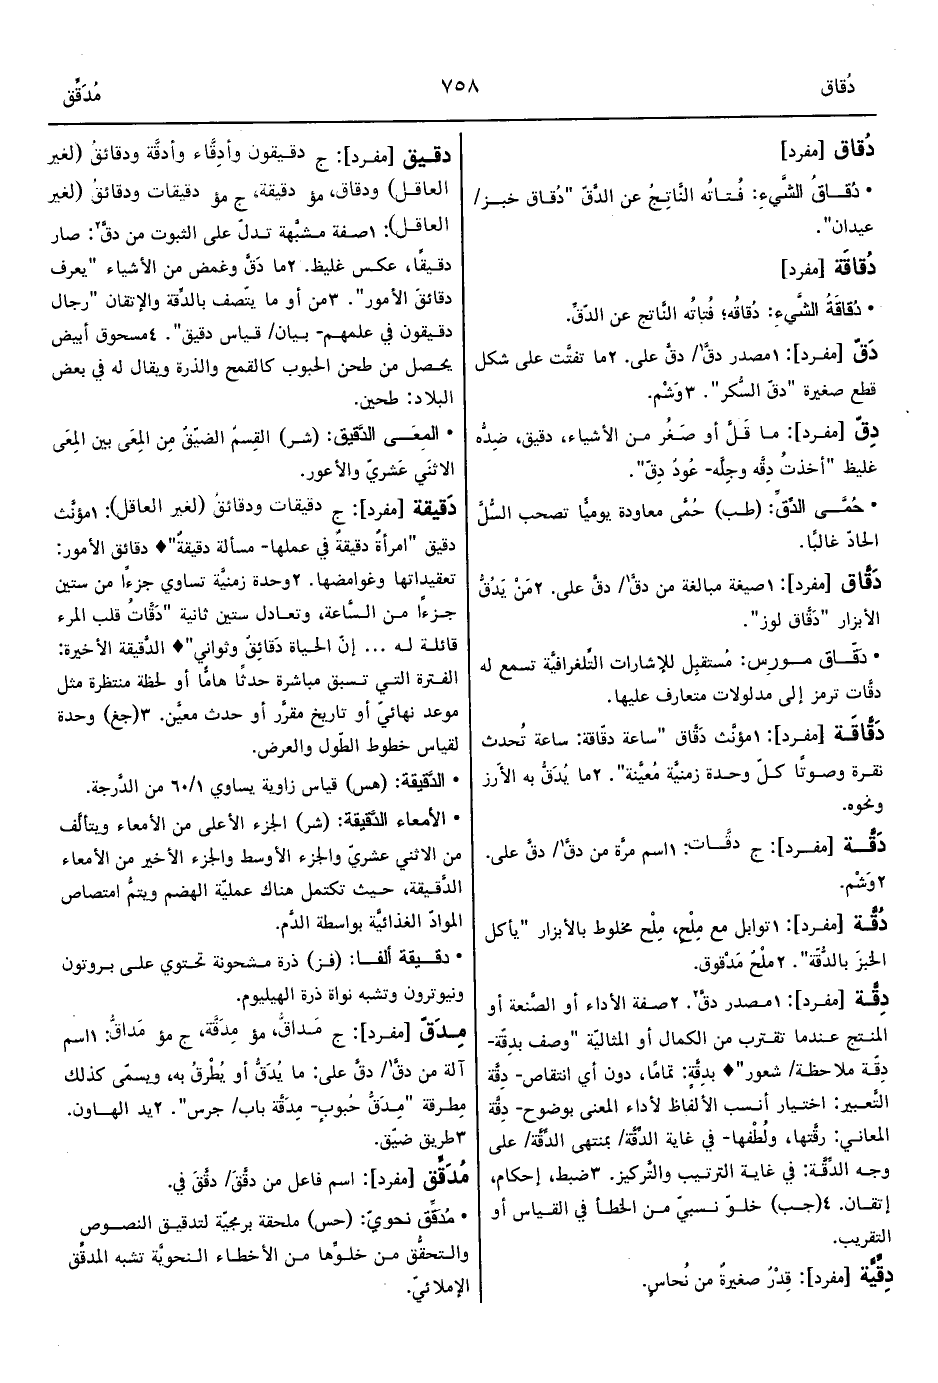 دُقاق
٧٥٨
مُدَقِّق
دُقاق [مفرد]
• دُقـاقُ الشَّيء: فُـتاتُه النَّاتِجُ عن الدَّقّ "دُقاق خبـز/
عيدان".
دُقاقَة [مفرد]
• دُقاقَةُ الشَّيء: دُقاقُه؛ فُتاتُه النَّاتج عن الدَّقّ.
دَقّ [مفرد]: ١مصدر دقَّ١/ دقَّ على. ٢ما تفتَّت على شكل
قطع صغيرة "دقّ السُّكر". ٣وَشْم.
دِقّ [مفرد]: ما قَلَّ أو صَغُر من الأشياء، دقيق، ضِدُّه
غليظ "أخذتُ دِقُّه وجلَّه- عُودُ دِقّ".
• حُمَّـى الدِّقّ: (طب) حُمَّى معاودة يوميًّا تصحب السُّلّ
الحادّ غالبًا.
دَقَّاق [مفرد]: ١صيغة مبالغة من دقَّ١/ دقَّ على. ٢مَنْ يَدُقُّ
الأبزار "دَقَّاق لوز".
• دقّـاق مـورس: مُستقبِل للإشارات التِّلغرافيَّة تسمع له
دقّات ترمز إلى مدلولات متعارف عليها.
دَقَّاقَـة [مفرد]: ١مؤنَّث دَقَّاق "ساعة دقّاقة: ساعة تُحدث
نقرة وصـوتًا كـلّ وحـدة زمنيَّة مُعيَّنة". ٢ما يُدَقُّ به الأرز
ونحوه.
دَقَّـة [مفـرد]: ج دقَّـات: ١اسم مرَّة من دقَّ١/ دقَّ على.
٢وَشْم.
دُقَّـة [مفـرد]: ١توابل مع مِلْح، مِلْح مخلوط بالأبزار "يأكل
الخبزَ بالدُّقّة". ٢ملْحُ مَدْقوق.
دِقَّـة [مفرد]: ١مصدر دقَّ٢. ٢صفة الأداء أو الصَّنعة أو
المنتج عندما تقترب من الكمال أو المثاليّة "وصف بدِقّة-
دِقّة ملاحظة/ شعور"♦ بدِقَّةٍ: تمامًا، دون أي انتقاص- دِقَّة
التَّعبير: اختيار أنسب الألفاظ لأداء المعنى بوضوح- دِقَّة
المعاني: رقَّتها، ولُطْفها- في غاية الدِّقَّة/ بمنتهى الدِّقَّة/ على
وجه الدِّقَّة: في غاية الترتيب والتَّركيز. ٣ضبط، إحكام،
إتقان. ٤(جب) خلـوّ نسبيّ مـن الخطـأ في القـياس أو
التقريب.
دِقِّيَّة [مفرد]: قِدْرُ صغيرةُ من نُحاسٍ.
دقـيق [مفـرد]: ج دقـيقون وأدِقَّاء وأدقَّة ودقائقُ (لغير
العاقـل) ودقاق، مؤ دقيقة، ج مؤ دقيقات ودقائقُ (لغير
العاقـل): ١صفة مشبَّهة تدلّ على الثبوت من دقَّ٢: صار
دقيقًا، عكس غليظ. ٢ما دَقَّ وغمض من الأشياء "يعرف
دقائقَ الأمور". ٣من أو ما يتّصف بالدِّقة والإتقان "رجال
دقيقون في علمهم- بيان/ قياس دقيق". ٤مسحوق أبيض
يحصل من طحن الحبوب كالقمح والذرة ويقال له في بعض
البلاد: طحين.
• المِعَـى الدَّقيق: (شر) القِسمُ الضيّقُ مِن المِعَى بين المِعَى
الاثنَي عَشَريّ والأعور.
دَقيقة [مفرد]: ج دقيقات ودقائقُ (لغير العاقل): ١مؤنَّث
دقيق "امرأةٌ دقيقةٌ في عملها- مسألة دقيقةٌ"♦ دقائق الأمور:
تعقيداتها وغوامضها. ٢وحدة زمنيَّة تساوي جزءًا من ستين
جـزءًا مـن السَّاعة، وتعادل ستين ثانية "دَقَّاتُ قلب المرء
قائلـة لـه ... إنّ الحياة دَقائقٌ وثواني"♦ الدَّقيقة الأخيرة:
الفترة التي تسبق مباشرة حدثًا هامًّا أو لحظة منتظرة مثل
موعد نهائيّ أو تاريخ مقرَّر أو حدث معيَّن. ٣(جغ) وحدة
لقياس خطوط الطّول والعرض.
• الدَّقيقة: (هس) قياس زاوية يساوي ٦٠/١ من الدَّرجة.
• الأمعاء الدَّقيقة: (شر) الجزء الأعلى من الأمعاء ويتألّف
من الاثني عشريّ والجزء الأوسط والجزء الأخير من الأمعاء
الدَّقيقة، حيث تكتمل هناك عمليّة الهضم ويتمُّ امتصاص
الموادّ الغذائيَّة بواسطة الدَّم.
• دقـيقة ألفـا: (فـز) ذرة مشحونة تحتوي على بروتون
ونيوترون وتشبه نواة ذرة الهيليوم.
مِـدَقّ [مفرد]: ج مَـداقُّ، مؤ مِدَقَّة، ج مؤ مَداقُّ: ١اسم
آلة من دقَّ١/ دقَّ على: ما يُدَقُّ أو يُطْرقُ به، ويسمّى كذلك
مِطرقة "مِدَقُّ حُبوبٍ- مِدَقَّة باب/ جرس". ٢يد الهاون.
٣طريق ضيّق.
مُدَقِّق [مفرد]: اسم فاعل من دقَّقَ/ دقَّقَ في.
• مُدقِّق نحويّ: (حس) ملحقة برمجيّة لتدقيق النصـوص
والتحقُّق من خلـوّها من الأخطاء النحويَّة تشبه المدقِّق
الإملائيّ.